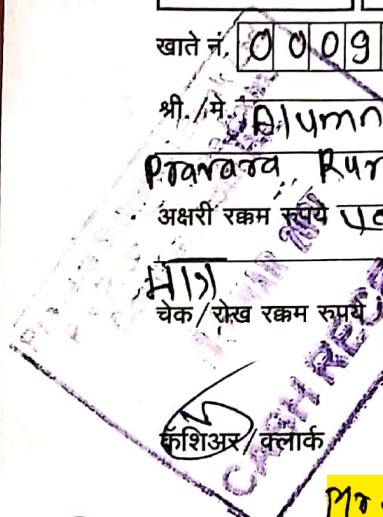 खाते नं. 0 0 0 9
श्री./मे. Alumn
Pravara Rur
अक्षरी रक्कम रुपये
मात्र
चेक/रोख रक्कम रुपये
कॅशिअर/क्लार्क
CASH RECE
Mr